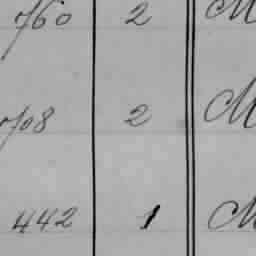 760 2 M
708 2 M
442 1 M